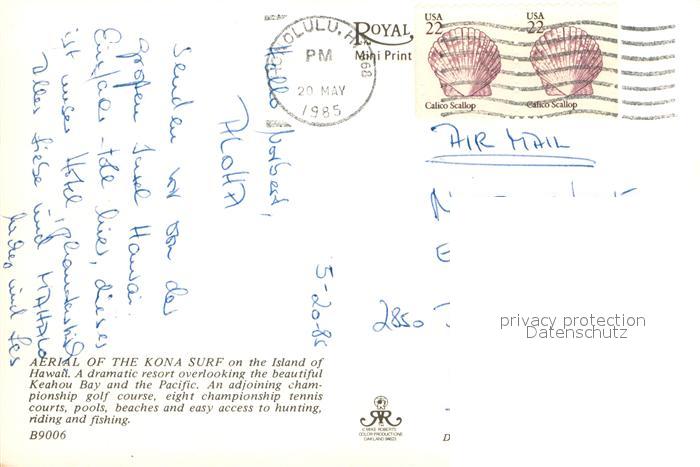 HONOLULU, H
PM
20 MAY
1985
968
ROYAL
Mini Print
USA
22
Calico Scallop
USA
22
Calico Scallop
AIR MAIL
5-20-85
Hallo Norbert,
ALOHA
Senden wir von der
großen Insel Hawaii.
Einfach toll hier, dieses
ist unser Hotel,
Alles Liebe und MAHALO
und
2850
privacy protection
Datenschutz
AERIAL OF THE KONA SURF on the Island of
Hawaii. A dramatic resort overlooking the beautiful
Keahou Bay and the Pacific. An adjoining cham-
pionship golf course, eight championship tennis
courts, pools, beaches and easy access to hunting,
riding and fishing.
B9006
© MIKE ROBERTS
COLOR PRODUCTIONS
OAKLAND 94623